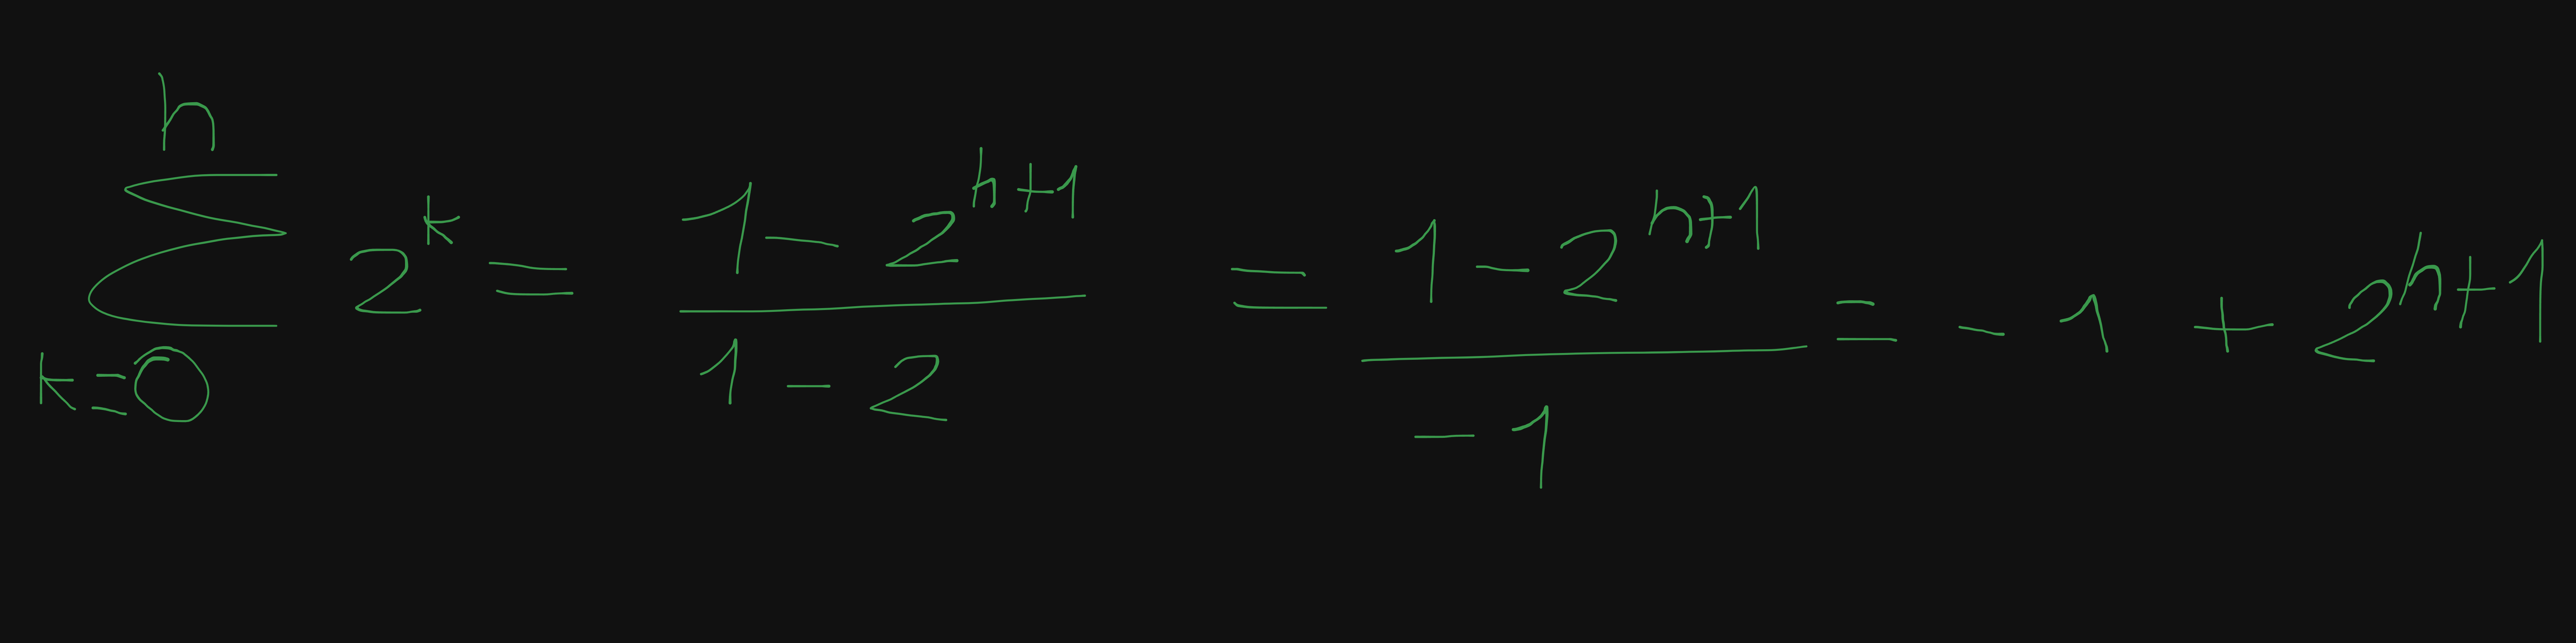 \sum_{k=0}^{n} 2^k = \frac{1-2^{n+1}}{1-2} = \frac{1-2^{n+1}}{-1} = -1 + 2^{n+1}